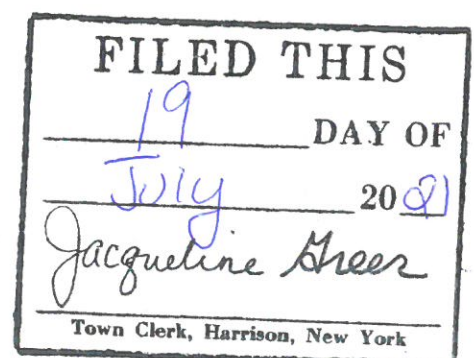 FILED THIS
19 DAY OF
July 2021
Jacqueline Greer
Town Clerk, Harrison, New York